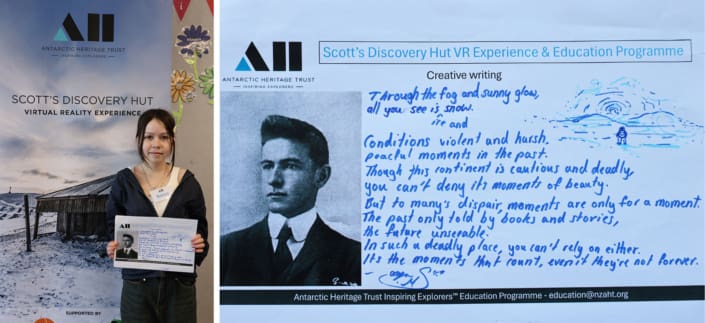 ANTARCTIC HERITAGE TRUST
INSPIRING EXPLORERS
SCOTT'S DISCOVERY HUT
VIRTUAL REALITY EXPERIENCE
SUPPORTED BY
ANTARCTIC HERITAGE TRUST
INSPIRING EXPLORERS
Scott's Discovery Hut VR Experience & Education Programme
Creative writing
Through the fog and sunny glow,
all you see is snow.
ice and
Conditions violent and harsh.
peacful moments in the past.
Though this continent is cautious and deadly,
you can't deny its moments of beauty.
But to many's dispair, moments are only for a moment.
The past only told by books and stories,
the future unseeable.
In such a deadly place, you can't rely on either.
It's the moments that count, even if they're not forever.
Antarctic Heritage Trust Inspiring Explorers™ Education Programme - education@nzaht.org